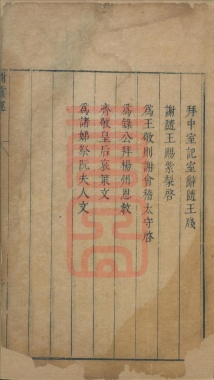 拜中軍記室辭隨王牋
謝隨王賜紫梨啓
爲王敬則謝會稽太守啓
爲錄公拜楊州恩教
齊敬皇后哀策文
爲諸娣祭阮夫人文